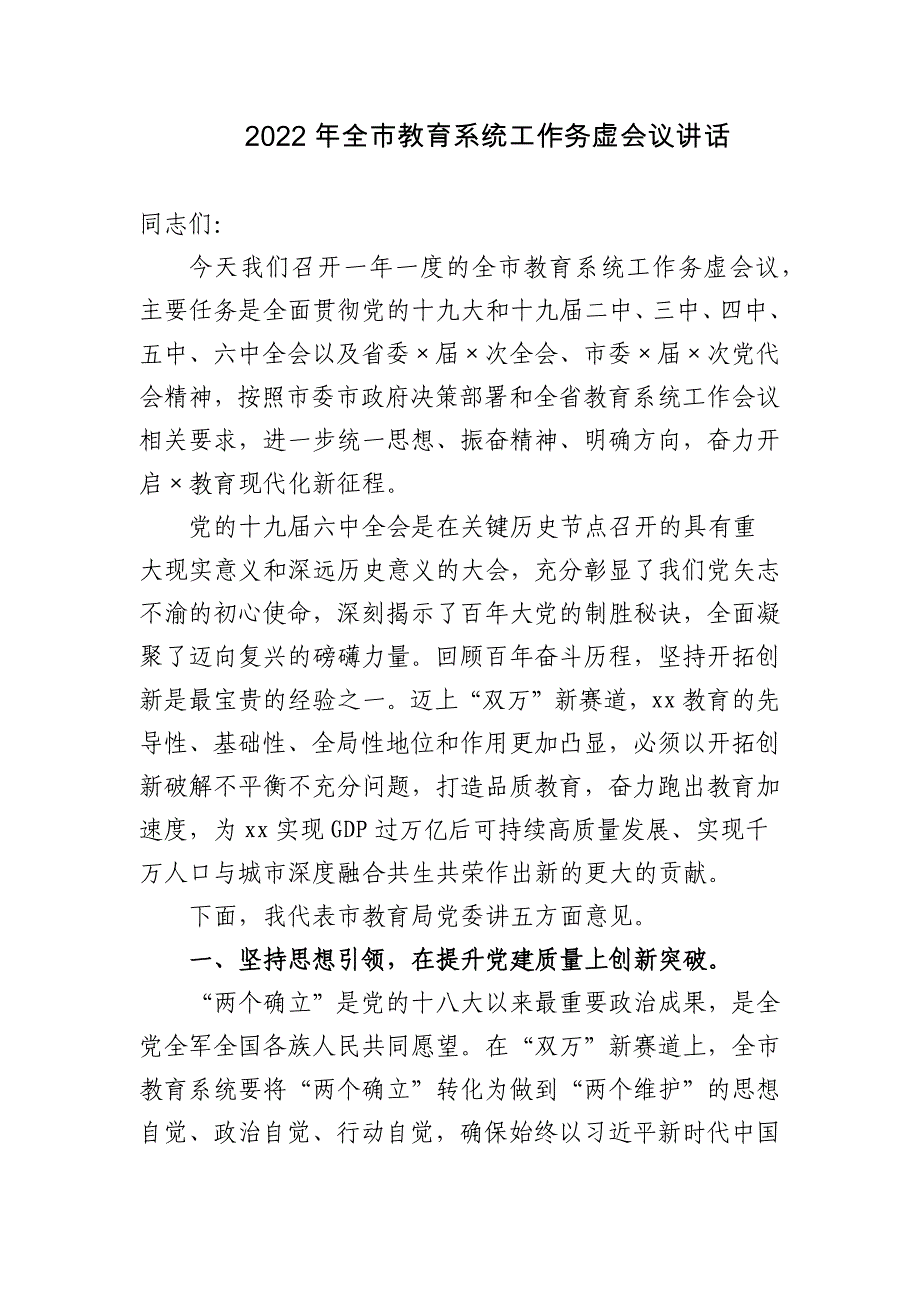 2022 年全市教育系统工作务虚会议讲话
同志们：
今天我们召开一年一度的全市教育系统工作务虚会议，
主要任务是全面贯彻党的十九大和十九届二中、三中、四中、
五中、六中全会以及省委×届×次全会、市委×届×次党代
会精神，按照市委市政府决策部署和全省教育系统工作会议
相关要求，进一步统一思想、振奋精神、明确方向，奋力开
启×教育现代化新征程。
党的十九届六中全会是在关键历史节点召开的具有重
大现实意义和深远历史意义的大会，充分彰显了我们党矢志
不渝的初心使命，深刻揭示了百年大党的制胜秘诀，全面凝
聚了迈向复兴的磅礴力量。回顾百年奋斗历程，坚持开拓创
新是最宝贵的经验之一。迈上“双万”新赛道，xx 教育的先
导性、基础性、全局性地位和作用更加凸显，必须以开拓创
新破解不平衡不充分问题，打造品质教育，奋力跑出教育加
速度，为 xx 实现 GDP 过万亿后可持续高质量发展、实现千
万人口与城市深度融合共生共荣作出新的更大的贡献。
下面，我代表市教育局党委讲五方面意见。
一、坚持思想引领，在提升党建质量上创新突破。
“两个确立”是党的十八大以来最重要政治成果，是全
党全军全国各族人民共同愿望。在“双万”新赛道上，全市
教育系统要将“两个确立”转化为做到“两个维护”的思想
自觉、政治自觉、行动自觉，确保始终以习近平新时代中国